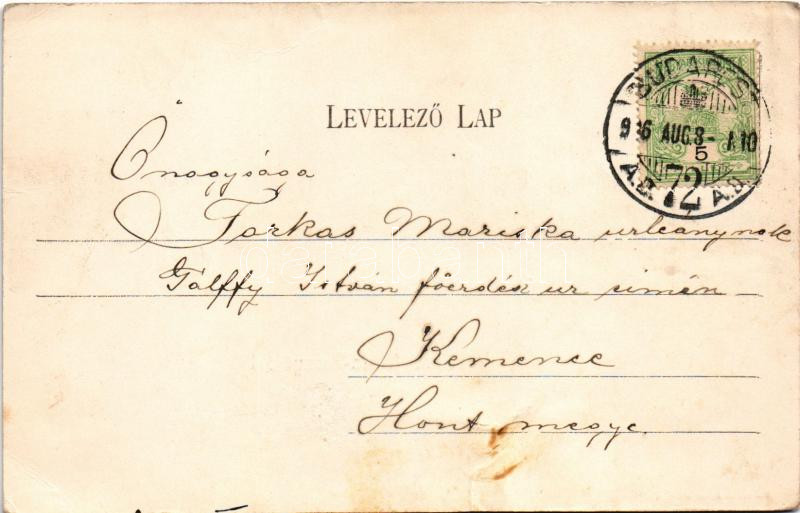 BUDAPEST
906 AUG. 8 - 10
5
72
A.B. A.B.
LEVELEZŐ LAP
Őnagysága
Farkas Mariska urleánynak
Pálffy István főerdész ur cimén
Kemence
Hont megye.